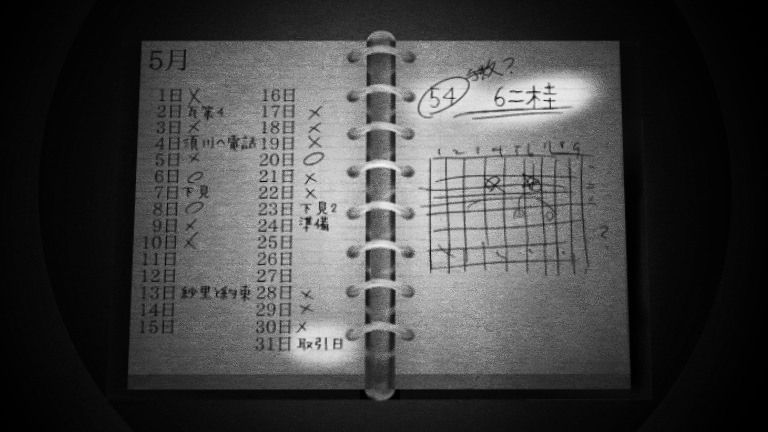 5月
1日 ×
2日
3日 ×
4日 須川へ電話
5日 ×
6日 ○
7日 下見
8日 ○
9日 ×
10日 ×
11日
12日
13日 紗里と約束
14日
15日
16日
17日 ×
18日 ×
19日 ×
20日 ○
21日 ×
22日 ×
23日 下見2
24日 準備
25日
26日
27日
28日 ×
29日 ×
30日 ×
31日 取引日
手数?
54 6二桂